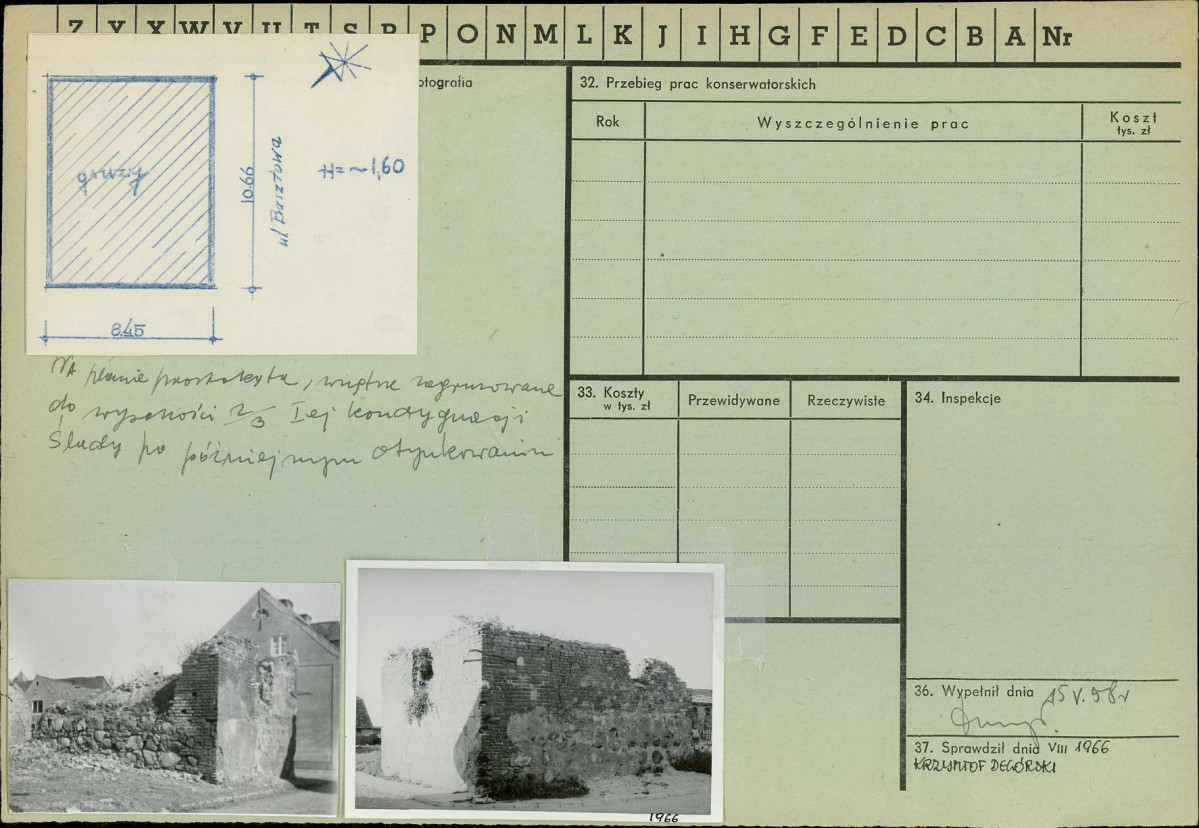 Z Y X W V U T S R P O N M L K J I H G F E D C B A Nr
otografia
gruzy
10.66
ul Basztowa
H= ~1,60
8.45
Na planie prostokąta, wnętrze zagruzowane
do wysokości 2/3 I ej kondygnacji
Ślady po późniejszym otynkowaniu
32. Przebieg prac konserwatorskich
Rok
Wyszczególnienie prac
Koszt
tys. zł
33. Koszty
w tys. zł
Przewidywane
Rzeczywiste
34. Inspekcje
36. Wypełnił dnia 15 V. 58 r
37. Sprawdził dnia VIII 1966
KRZYSZTOF DEGÓRSKI
1966